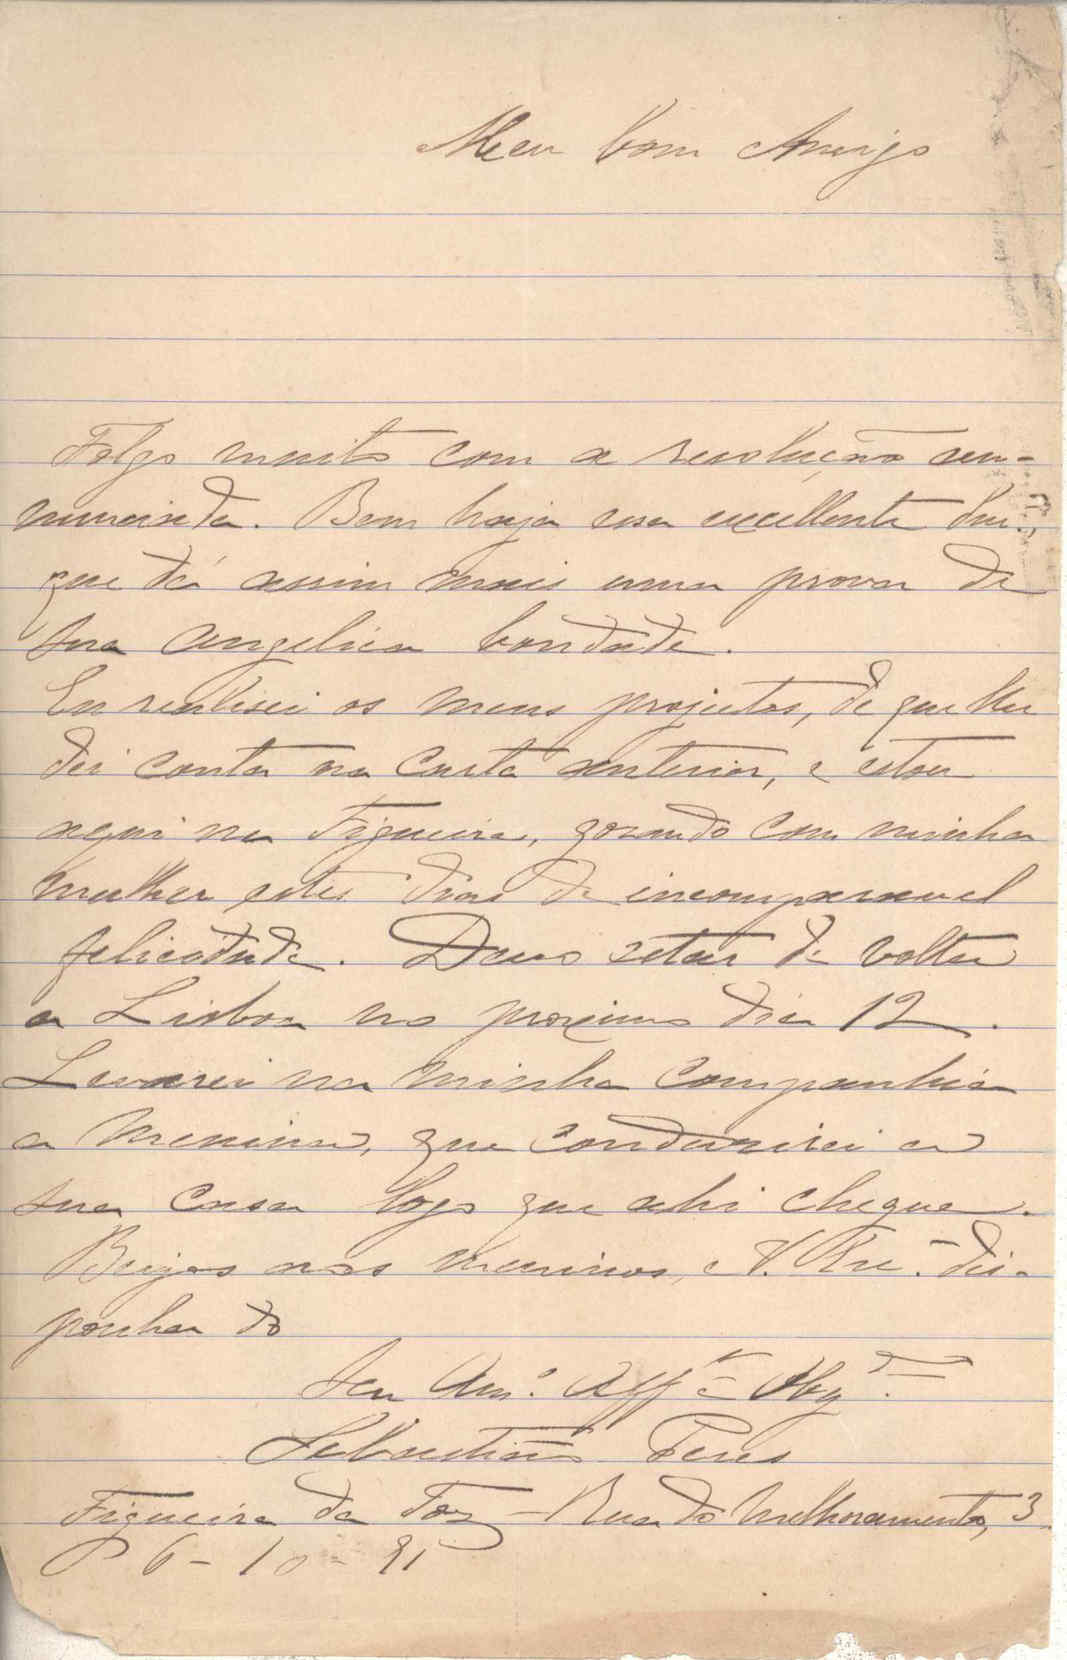 Meu bom Amigo
Folgo muito com a resolução an-
nunciada. Bem haja essa excellente
que dá assim mais uma prova de
sua angelica bondade.
Eu realisei os meus projectos, de que lhe
dei conta na carta anterior, e estou
aqui na Figueira, gozando com minha
mulher estes dias de incomparavel
felicidade. Devo estar de volta
a Lisboa no proximo dia 12.
Levarei na minha companhia
a menina, que conduzirei a
sua casa logo que ahi chegue.
Beijos aos meninos, e V. Exc.ª dis-
ponha do
Seu Am.º Aff.º e Obg.do
Sebastião Peres
Figueira da Foz - Rua do Melhoramento, 3
6-10-91